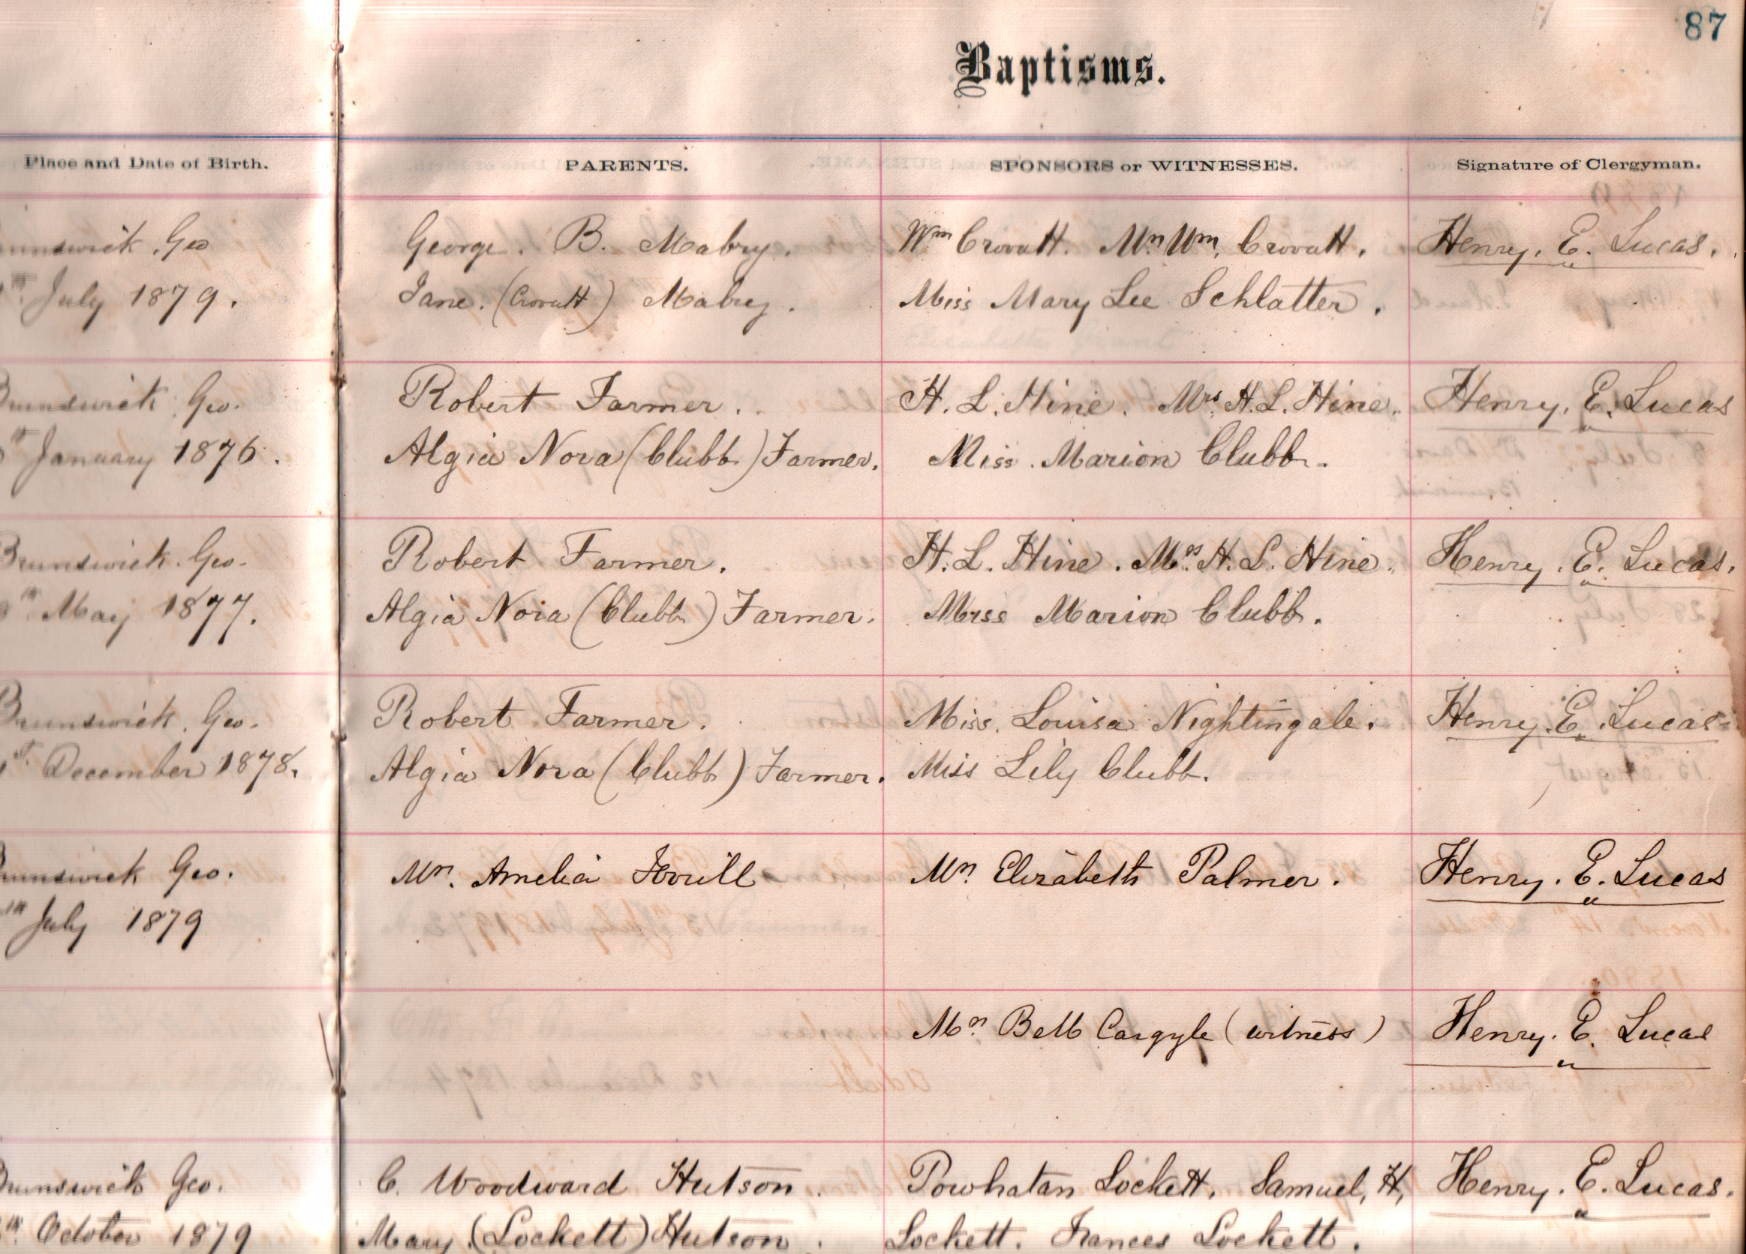 87
Baptisms.
Place and Date of Birth. PARENTS. SPONSORS or WITNESSES. Signature of Clergyman.
Geo George. B. Mabry. Wm Crovatt. Mrs Wm. Crovatt. Henry. E. Lucas.
July 1879. Jane. (Crovatt) Mabry. Miss Mary Lee Schlatter.
Brunswick Geo. Robert Farmer. H. L. Hine. Mrs. H. L. Hine. Henry. E. Lucas
January 1876. Algia Nora (Clubb) Farmer. Miss. Marion Clubb.
Brunswick. Geo. Robert Farmer. H. L. Hine. Mrs. H. L. Hine. Henry. E. Lucas.
May 1877. Algia Nora (Clubb) Farmer. Miss Marion Clubb.
Brunswick. Geo. Robert Farmer. Miss. Louisa Nightingale. Henry. E. Lucas.
December 1878. Algia Nora (Clubb) Farmer. Miss Lily Clubb.
Brunswick Geo. Mrs. Amelia Mrs. Elizabeth Palmer. Henry. E. Lucas
July 1879
Mrs Bell Cargyle (witness) Henry. E. Lucas
Brunswick Geo. C. Woodward Hutson. Powhatan Lockett. Samuel, H, Henry. E. Lucas.
October 1879 Mary. (Lockett) Hutson. Lockett. Frances Lockett.